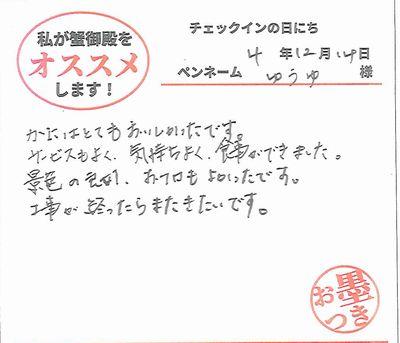 私が蟹御殿を
オススメ
します!
チェックインの日にち
4年12月14日
ペンネーム ゆうゆ 様
かにはとてもおいしかったです。
サービスもよく、気持ちよく、食事ができました。
景色の お フロもよかったです。
工事が終ったらまたきたいです。
お墨つき